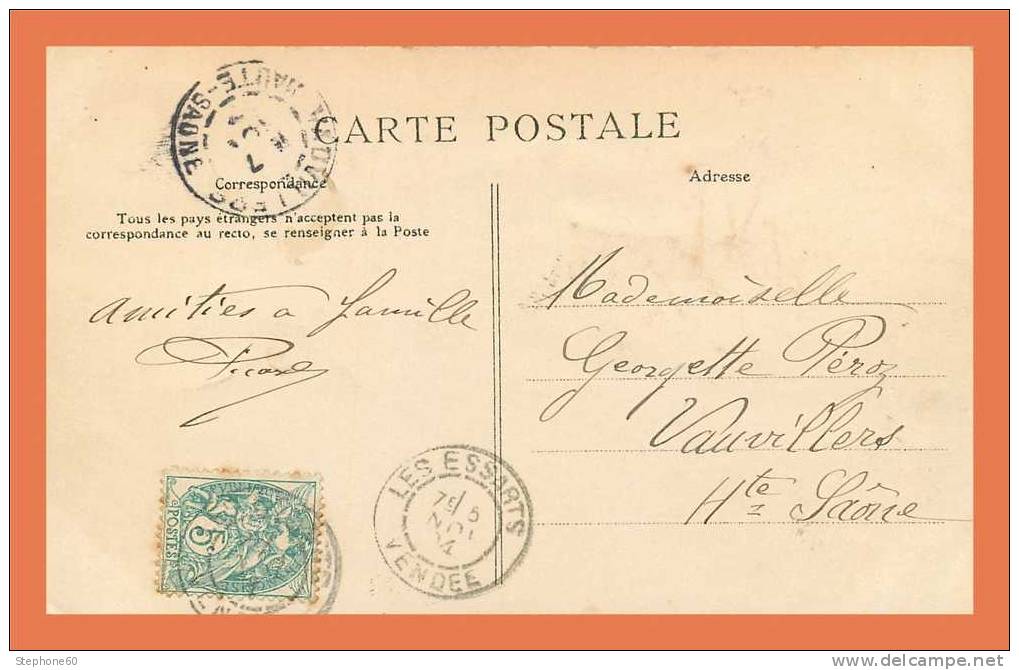 CARTE POSTALE
VAUVILLERS HAUTE-SAONE
7
Correspondance
Adresse
Tous les pays étrangers n'acceptent pas la
correspondance au recto, se renseigner à la Poste
amities a famille
Picard
Mademoiselle
Georgette Péroz
Vauvillers
Hte Saône
LES ESSARTS
VENDEE
POSTES 5c
Stephone60
www.delcampe.net